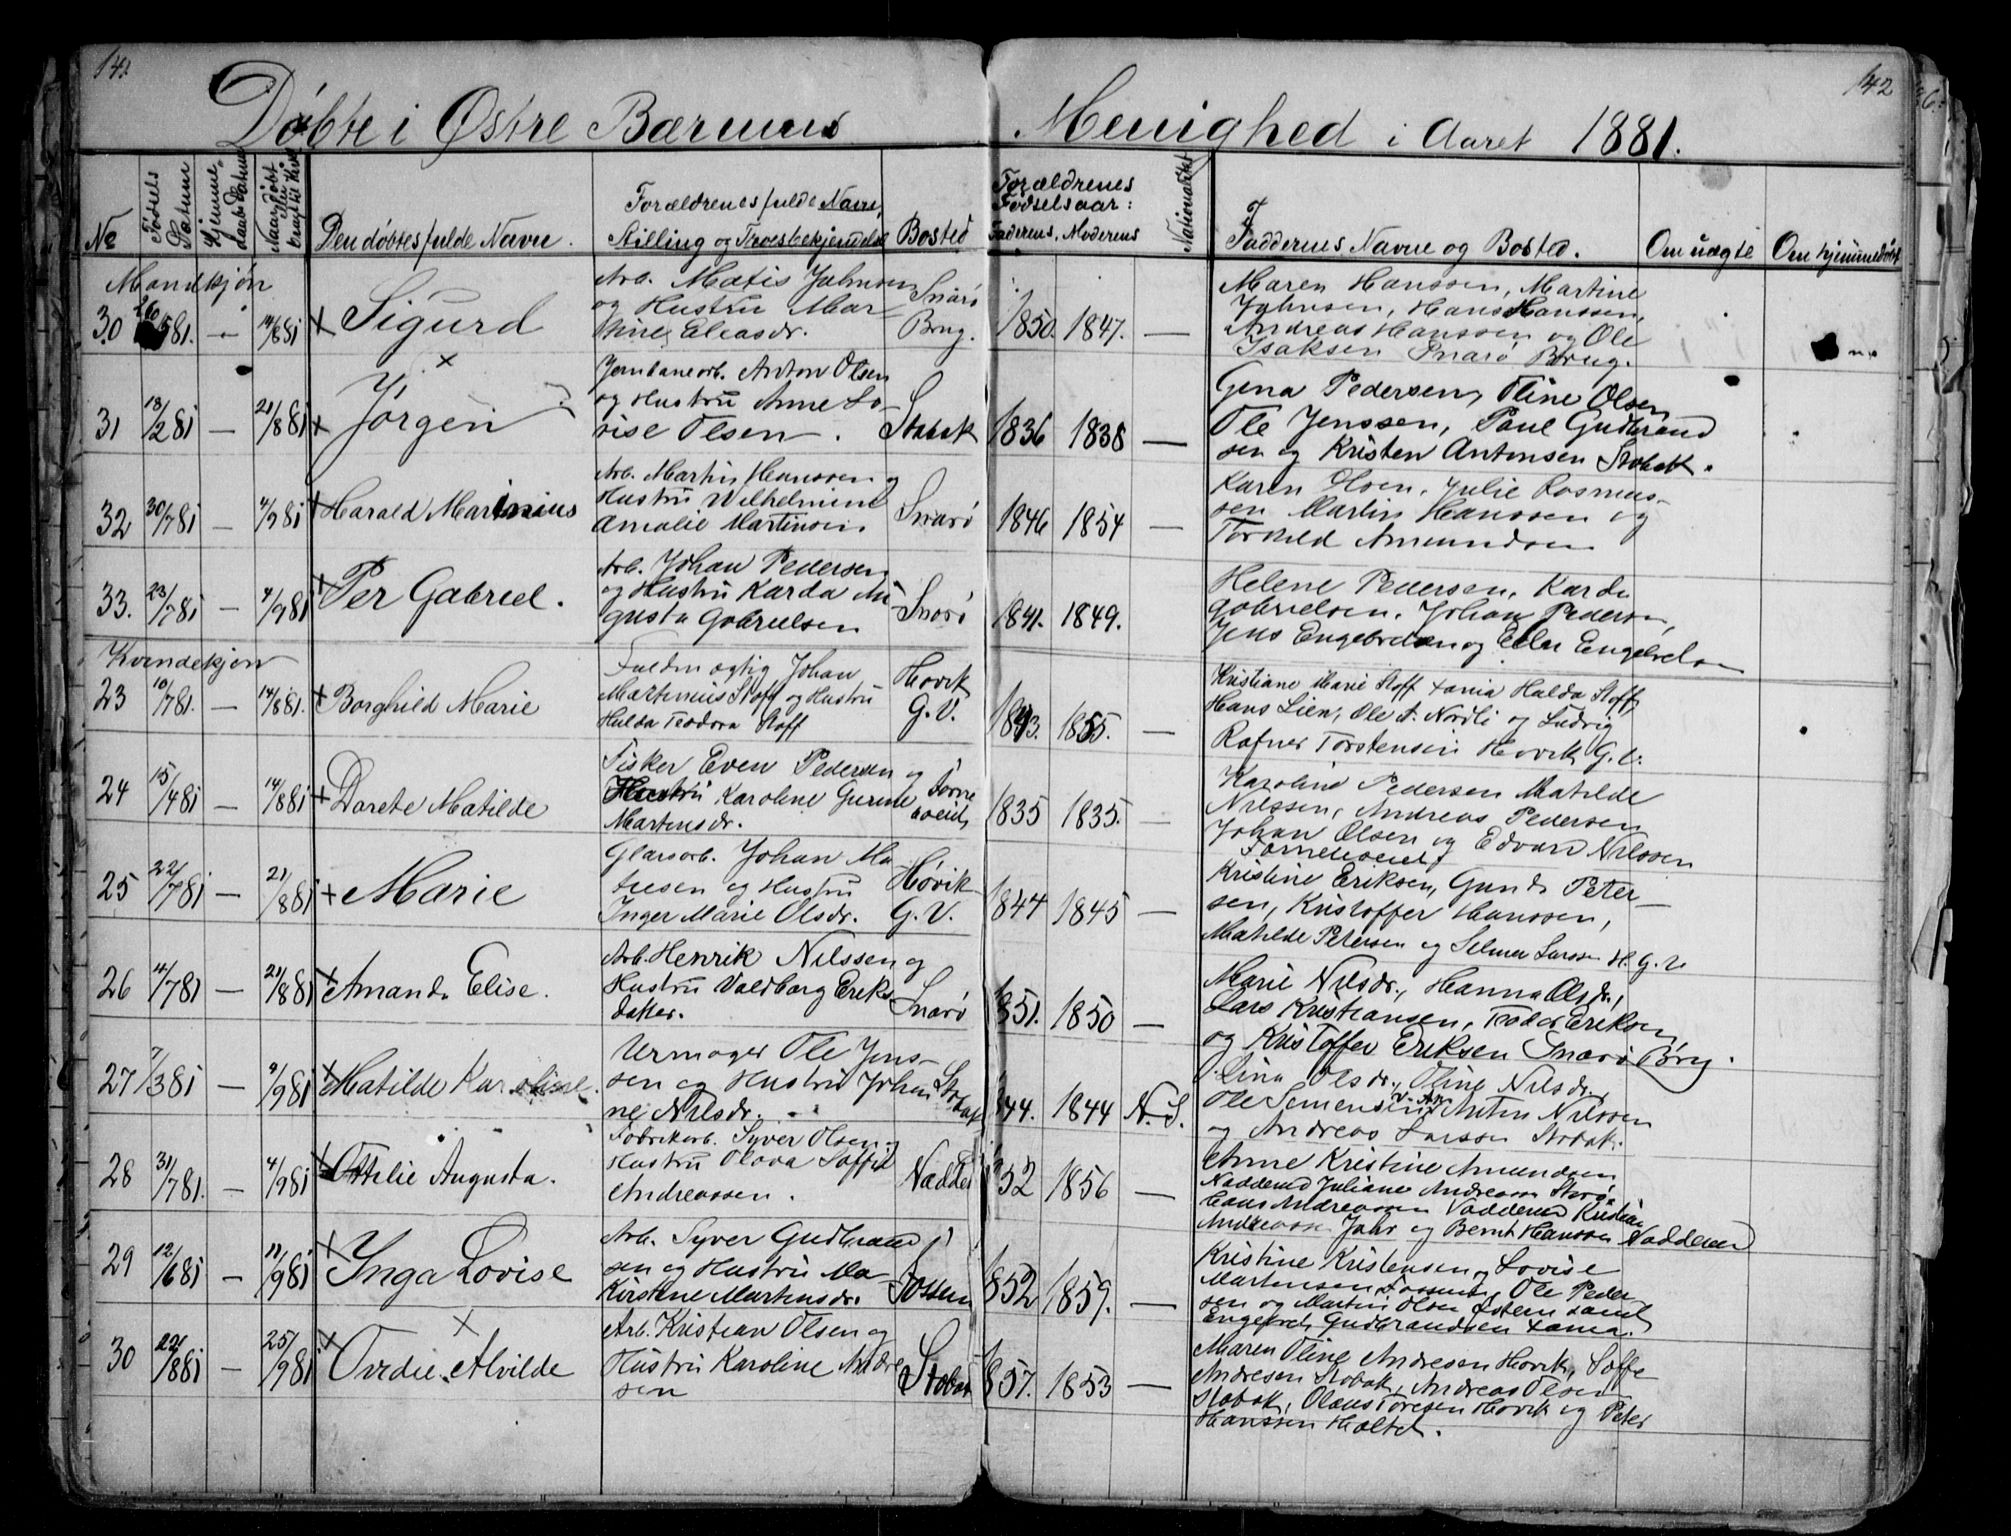 141.
142
Døbte i Østre Bærums Menighed i Aaret 1881.
No
Fødsels Datum
Hjemme-daabs Datum
Naar døbt eller bragt til Kirke
Den døbtes fulde Navn.
Forældrenes fulde Navne,
Stilling og Troesbekjendelse
Bosted
Forældrenes
Fødselsaar:
Faderens, Moderens
Nationalitet
Faddernes Navne og Bosted.
Om uægte
Om hjemmedøbt
Mandkjøn
30 581. " 14/8 81 + Sigurd
Arb. Matis Johnsen
og Hustru Mar
thine Eleasdr.
Snarø
Brug.
1850. 1847. —
Maren Hanssen, Martine
Johnsen, Hans Hanssen,
Andreas Hanssen og Ole
Isaksen Snarø Brug.
31 13/2 81 — 21/8 81 + Jørgen
Jernbanearb. Anton Olsen
og Hustru Anne Lo-
vise Olsen.
Stabæk
1836 1838 —
Gina Pedersen, Oline Olsen
Ole Jenssen, Paul Gudbrand
sen og Kristen Antonsen Stabæk.
32 30/7 81 — 4/9 81 + Harald Marinius
Arb. Martin Hanssen og
Hustru Wilhelmine
Amalie Martinsen
Snarø
1846 1854 —
Karen Olsen, Julie Rasmus-
sen Martin Hanssen og
Torkild Amundsen
33. 23/7 81 — 4/9 81 + Per Gabriel.
Arb. Johan Pedersen
og Hustru Karda Au
gusta Gabrielsen
Snarø
1841. 1849.
Helene Pedersen, Karda
Gabrielsen, Johan Pedersen,
Jens Engebretsen og Eller Engebretsen
Kvindekjøn
23 10/7 81. — 14/8 81. + Borghild Marie
Fuldmægtig Johan
Martinius Stoff og Hustru
Hulda Teodora Stoff
Høvik
G. V.
1843. 1855. —
Kristiane Marie Stoff Xania Hulda Stoff
Hans Lien, Ole A. Nordli og Ludvig
Rafner Torstensen Høvik G. V.
24 15/4 81 — 14/8 81 + Dorete Matilde
Fisker Even Pedersen og
Hustru Karoline Gurine
Martinsdr.
1835 1835. —
Karoline Pedersen Matilde
Nilssen, Andreas Pedersen
Johan Olsen og Edvard Nilssen
25 22/7 81 — 21/8 81 + Marie
Glasarb. Johan Ma-
tisen og Hustru
Inger Marie Olsdr.
Høvik
G. V.
1844 1845 —
Kristine Eriksen, Gunda Peter-
sen, Kristoffer Hanssen,
Matilde Petersen og Selmer Larssen H. G. V.
26 4/7 81 — 21/8 81 + Amanda Elise.
Arb. Henrik Nilssen og
Hustru Valdborg Eriks
datter.
Snarø
1851. 1850 —
Marie Nilsdr., Hanna Olsdr.,
Lars Kristiansen, Teodor Eriksen
og Kristoffer Eriksen Snarø Brug.
27 7/3 81 — 4/9 81 + Matilde Karoline.
Urmager Ole Jens-
sen og Hustru Johan
ne Nilsdr.
Stabæk
844. 1844 N. S.
Olina Olsdr., Oline Nilsdr.
Ole Semensen Anton Nilssen
og Andreas Larssen Stabæk.
28 31/7 81. — 4/9 81 + Ottilie Augusta.
Fabrikarb. Syver Olsen og
Hustru Olava Soffie
Andreassen.
Nadder
852 1856 —
Anne Kristine Amundsen
Nadderud Juliane Andreassen
Hans Andreassen Nadderud Kristian
Andreassen Jahr og Bernt Hanssen Nadderud
29 12/6 81 — 11/9 81 + Inga Lovise
Arb. Syver Gudbrand
sen og Hustru Ma
Kirstine Martinsdr.
Fossum
852 1859. —
Kristine Kristensen, Lovise
Martinsen Fossum, Ole Peder
sen og Martin Olsen Østern samt
Engebret Gudbrandsen Xania.
30 22/8 81 — 25/9 81 + Ovedie Alvilde
Arb. Kristian Olsen og
Hustru Karoline Andre
sen
Stabæk
857. 1853 —
Maren Oline Andresen Høvik, Soffe
Andresen Stabæk, Andreas Olsen
Stabæk, Olaus Toresen Høvik og Peter
Hanssen Holtet.